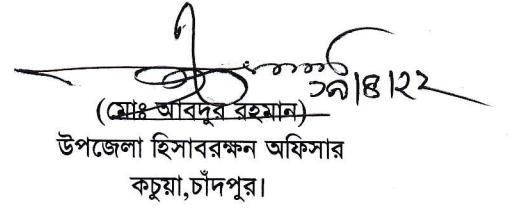 ১৯/৪/২২
(মোঃ আবদুর রহমান)
উপজেলা হিসাবরক্ষন অফিসার
কচুয়া,চাঁদপুর।